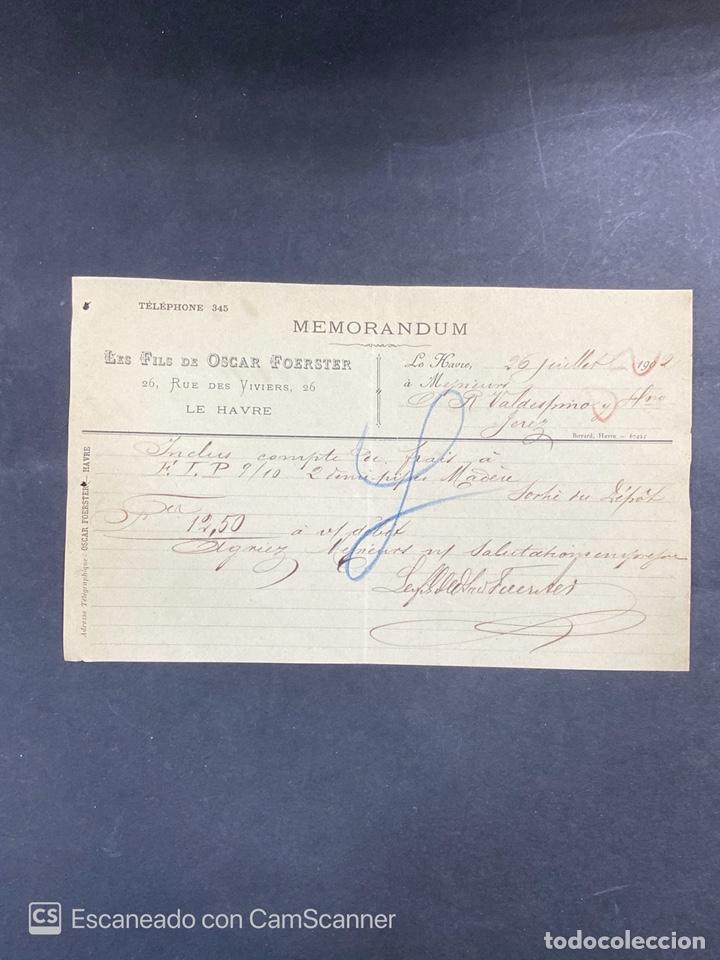 TÉLÉPHONE 345
MEMORANDUM
LES FILS DE OSCAR FOERSTER
26, RUE DES VIVIERS, 26
LE HAVRE
Le Havre, 26 juillet 1902
à Messieurs
R Valdespino y Hno
Jerez
Berard, Havre. — 67421
Adresse Télégraphique : OSCAR FOERSTER - HAVRE
Inclus compte de frais à
F. I. P 9/10 2 demi-pipes Madère
Sortie du Dépôt
Per
F 12,50 à v/ débit
Agréez Messieurs n/ salutations empressées
Les fils de Oscar Foerster
CS Escaneado con CamScanner
todocoleccion